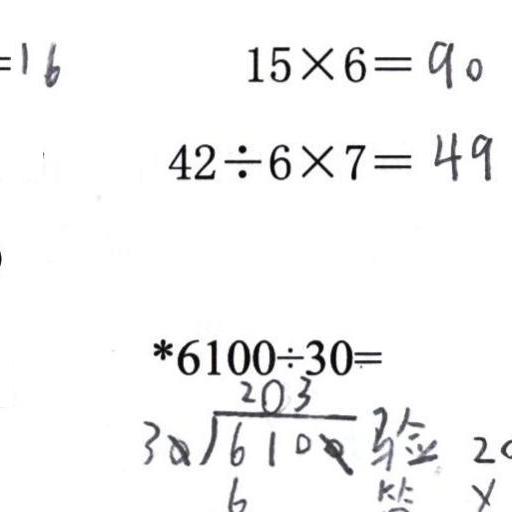 =16
15×6=90
42÷6×7=49
*6100÷30=
203
30)6100 验 20
6 ×